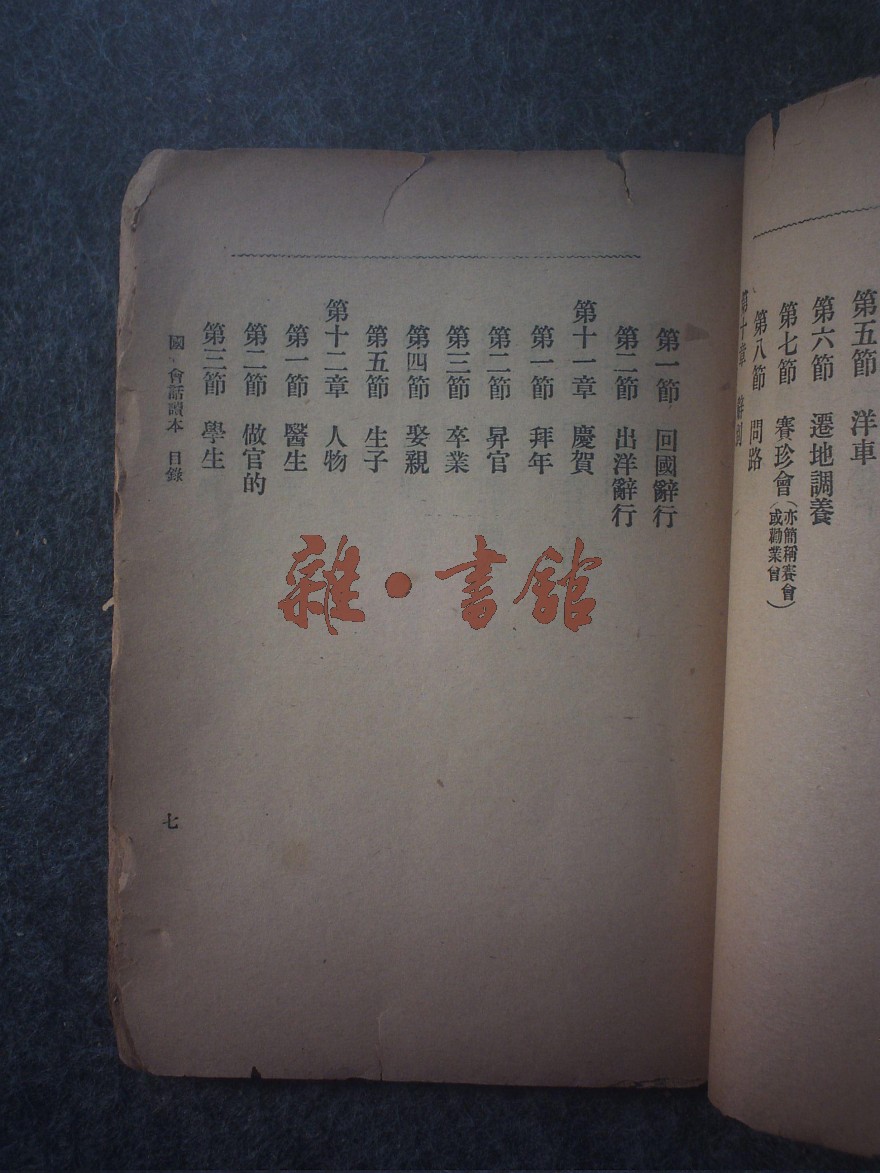 第五節 洋車
第六節 遷地調養
第七節 賽珍會(亦簡稱賽會
或勸業會)
第八節 問路
第十章
第一節 回國辭行
第二節 出洋辭行
第十一章 慶賀
第一節 拜年
第二節 昇官
第三節 卒業
第四節 娶親
第五節 生子
第十二章 人物
第一節 醫生
第二節 做官的
第三節 學生
國 會話讀本 目錄
七
雜·書館